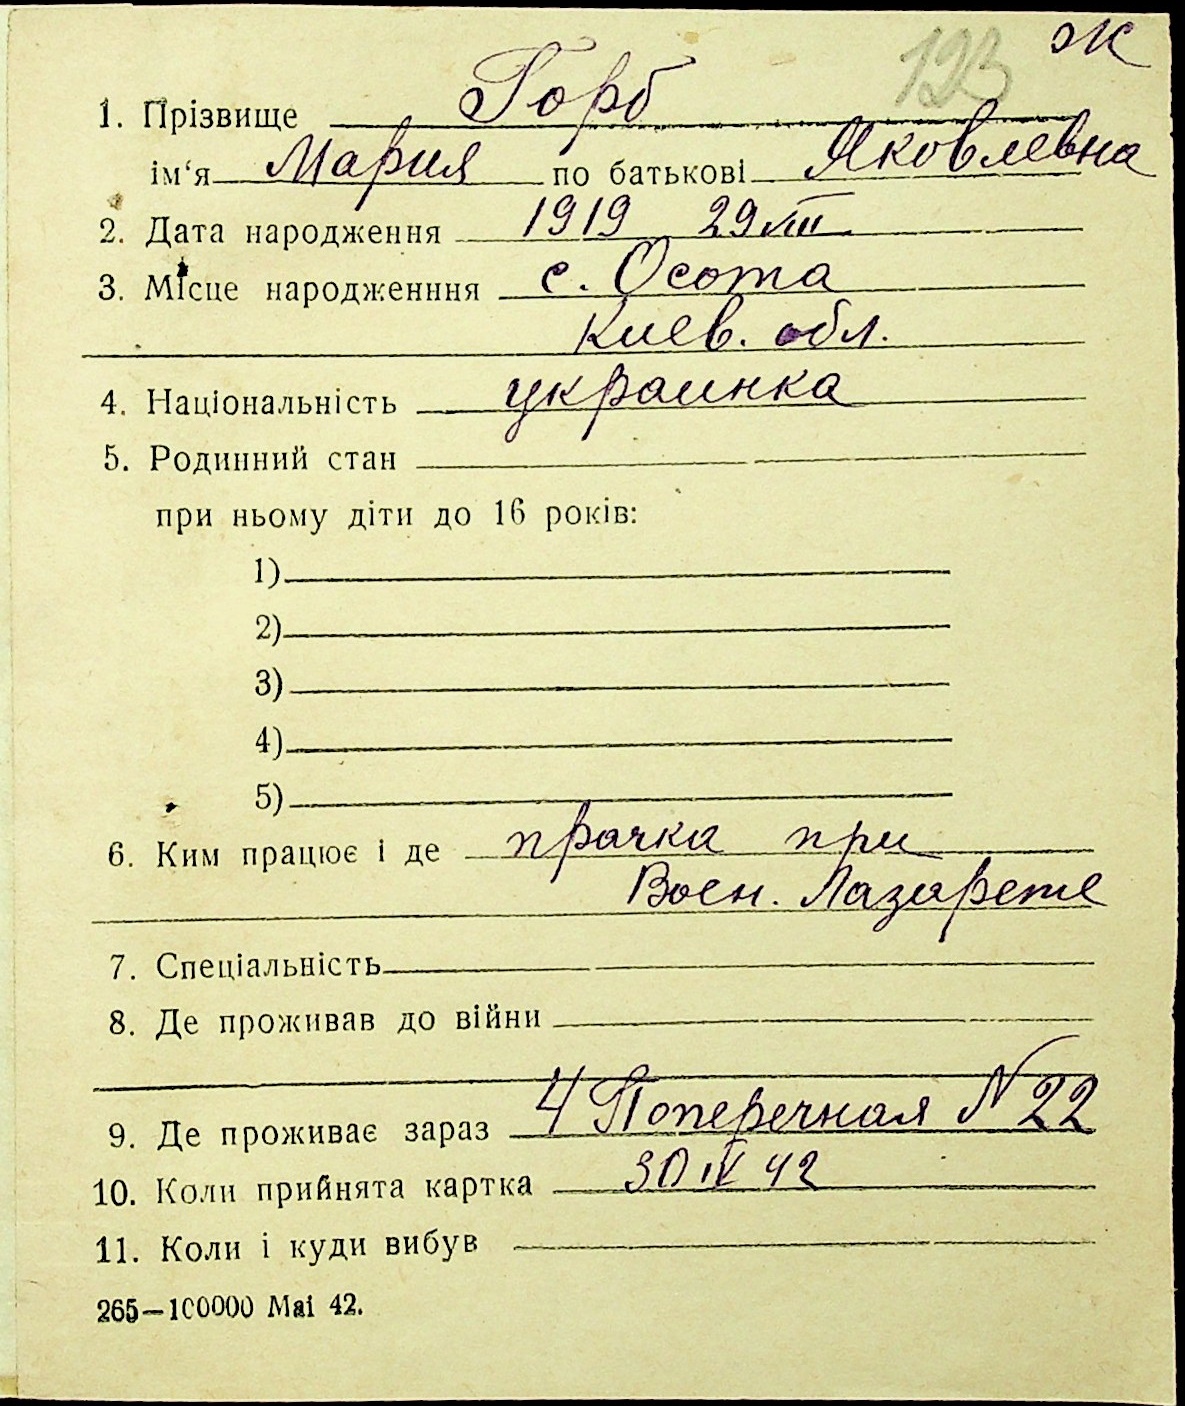 123 Ж
1. Прізвище Горб
ім‘я Мария по батькові Яковлевна
2. Дата народження 1919 29 VIII
3. Місце народженння с. Осота
Киев. обл.
4. Національність украинка
5. Родинний стан
при ньому діти до 16 років:
1)
2)
3)
4)
5)
6. Ким працює і де прачка при
Воен. Лазарете
7. Спеціальність
8. Де проживав до війни
9. Де проживає зараз 4 Поперечная N 22
10. Коли прийнята картка 30 IV 42
11. Коли і куди вибув
265—100000 Mai 42.